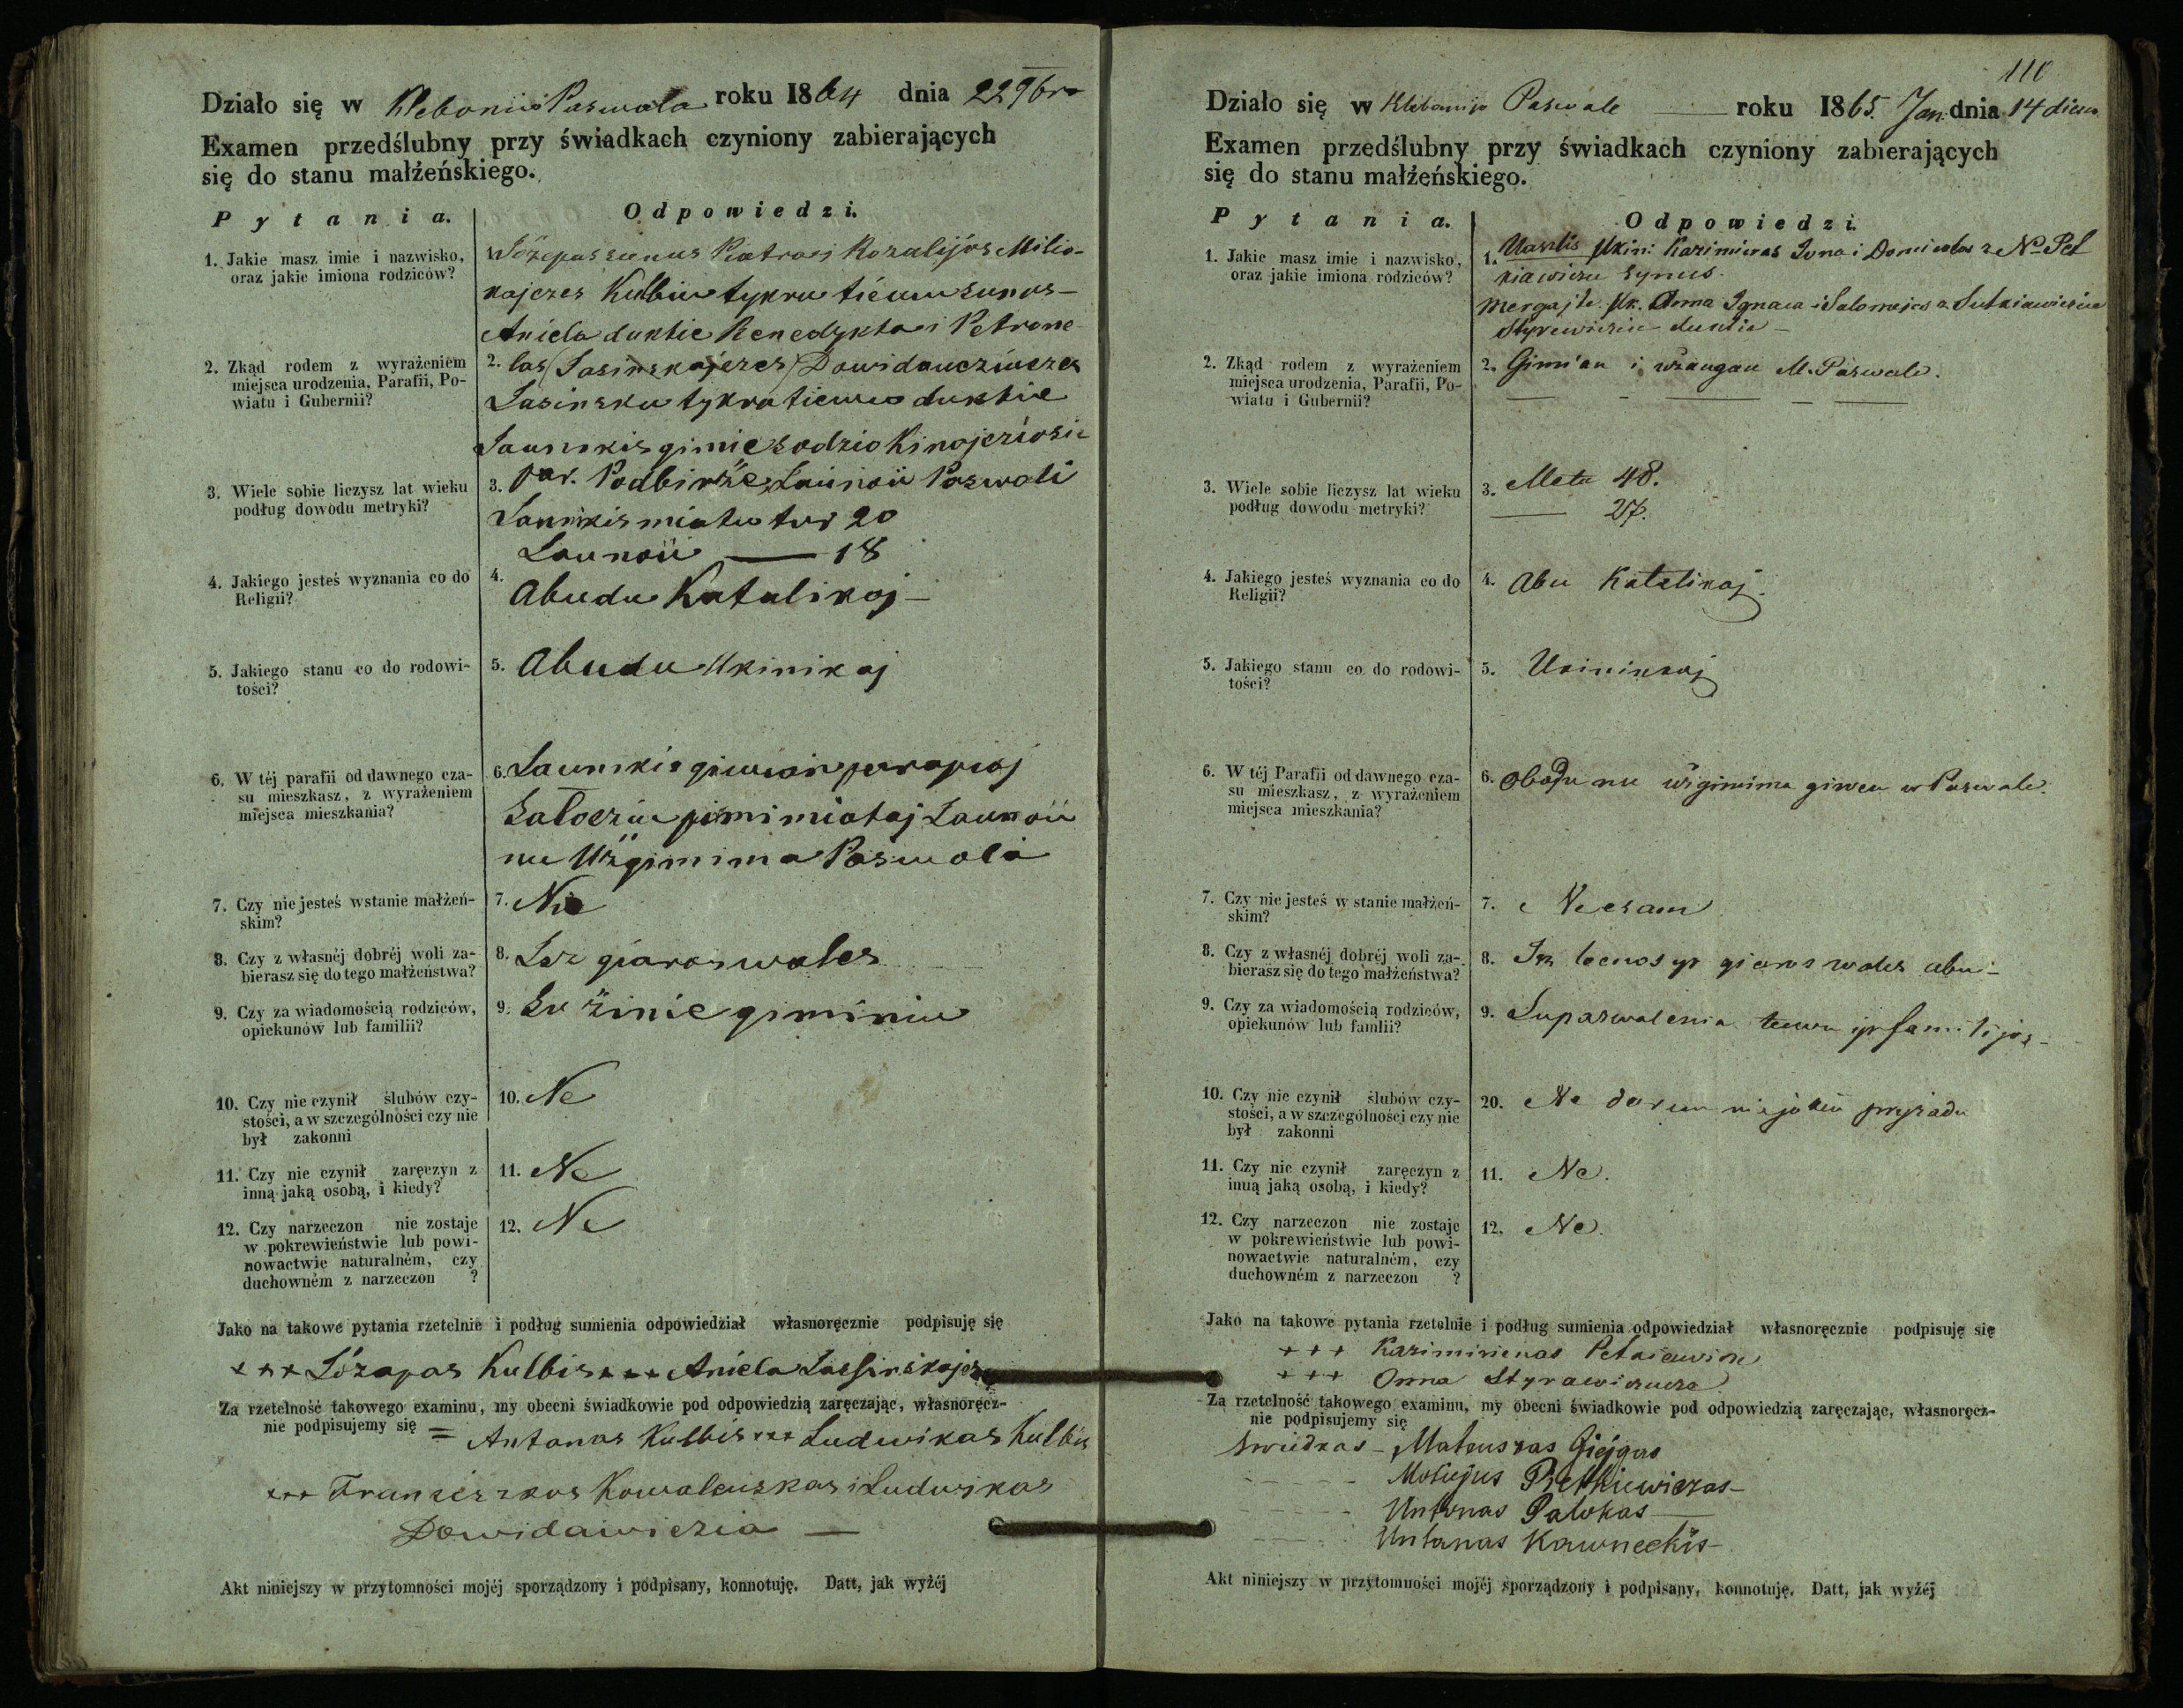 Działo się w Klebonii Paswala roku 1864 dnia 22 9br
Examen przedślubny przy świadkach czyniony zabierających
się do stanu małżeńskiego.
Pytania.
Odpowiedzi.
1. Jakie masz imie i nazwisko,
oraz jakie imiona rodziców?
1. Józepas sunus Piatrasi Rozalijos Milio-
najczes Kulbiu tykru tiewu sunus-
Aniela duktie Benedykta i Petrone-
2. Zkąd rodem z wyrażeniem
miejsca urodzenia, Parafii, Po-
wiatu i Gubernii?
2. las (Jasinskajczes) Dowidaucziuczes
Jasinsku tykru tiewu duktie
Jaunikis gimie sodzio Kinajcziosie
3. Wiele sobie liczysz lat wieku
podług dowodu metryki?
3. Par. Podbirže Launoii Paswali
Jaunikis miatu tur 20
Launoii — 18
4. Jakiego jesteś wyznania co do
Religii?
4. Abudu Katalikaj-
5. Jakiego stanu co do rodowi-
tości?
5. Abudu Ukinikaj
6. W téj parafii od dawnego cza-
su mieszkasz, z wyrażeniem
miejsca mieszkania?
6. Jaunikis giwian parapioj
Sałocziu pirmi miataj Launoii
nu Užgimima Paswala
7. Czy nie jesteś w stanie małżeń-
skim?
7. Nie
8. Czy z własnéj dobréj woli za-
bierasz się do tego małżeństwa?
8. Isz giaros wales
9. Czy za wiadomością rodziców,
opiekunów lub familii?
9. Su žinie giminiu
10. Czy nie czynił ślubów czy-
stości, a w szczególności czy nie
był zakonni
10. Ne
11. Czy nie czynił zaręczyn z
inną jaką osobą, i kiedy?
11. Ne
12. Czy narzeczon nie zostaje
w pokrewieństwie lub powi-
nowactwie naturalném, czy
duchowném z narzeczon ?
12. Ne
Jako na takowe pytania rzetelnie i podług sumienia odpowiedział własnoręcznie podpisuję się
+++ Józapas Kulbis +++ Aniela Jassinskajcze
Za rzetelność takowego examinu, my obecni świadkowie pod odpowiedzią zaręczając, własnoręcz-
nie podpisujemy się = Antanas Kulbis +++ Ludwikas Kulbis
+++ Franciszkos Kowaleuskas i Ludwikas
Dowidawiczia —
Akt niniejszy w przytomności mojéj sporządzony i podpisany, konnotuję. Datt, jak wyżéj
110
Działo się w Klebanijo Paswale roku 1865. Jan. dnia 14 diena
Examen przedślubny przy świadkach czyniony zabierających
się do stanu małżeńskiego.
Pytania.
Odpowiedzi.
1. Jakie masz imie i nazwisko,
oraz jakie imiona rodziców?
1. Naszlis Ukini: Kazimieras Jona i Domicelas z N. Pet
kiawiczu synus.
Mergajte Uk. Anna Ignaca i Salomejos a Sutkiawicziu
Styrewicziu duktie —
2. Zkąd rodem z wyrażeniem
miejsca urodzenia, Parafii, Po-
wiatu i Gubernii?
2. Gimian i užaugau M. Paswale.
3. Wiele sobie liczysz lat wieku
podług dowodu metryki?
3. Metu 48.
— 27.
4. Jakiego jesteś wyznania co do
Religii?
4. Abu Katalikaj.
5. Jakiego stanu co do rodowi-
tości?
5. Ukininkaj
6. W téj Parafii od dawnego cza-
su mieszkasz, z wyrażeniem
miejsca mieszkania?
6. Abodu nu užgimima giwen w Paswale.
7. Czy nie jesteś w stanie małżeń-
skim?
7. Ne esam
8. Czy z własnéj dobréj woli za-
bierasz się do tego małżeństwa?
8. Isz locnos yr gieros wales abu-
9. Czy za wiadomością rodziców,
opiekunów lub famlii?
9. Su paswalenia tewu yr familijos-
10. Czy nie czynił ślubów czy-
stości, a w szczególności czy nie
był zakonni
20. Ne darem niejokiu prysiadu
11. Czy nie czynił zaręczyn z
inuą jaką osobą, i kiedy?
11. Ne.
12. Czy narzeczon nie zostaje
w pokrewieństwie lub powi-
nowactwie naturalném, czy
duchowném z narzeczon ?
12. Ne.
Jako na takowe pytania rzetelnie i podług sumienia odpowiedział własnoręcznie podpisuję się
+++ Kazimirienas Petkiewicze
+++ Onna Styrawiczucze
Za rzetelność takowego examinu, my obecni świadkowie pod odpowiedzią zaręczając, własnoręcz-
nie podpisujemy się
Swiedkas - Mateuszas Giejgas
Motiejus Pietkiewiczas-
Untanas Palukas —
Untanas Kawneckis-
Akt niniejszy w przytomności mojéj sporządzony i podpisany, konnotuję. Datt, jak wyżéj